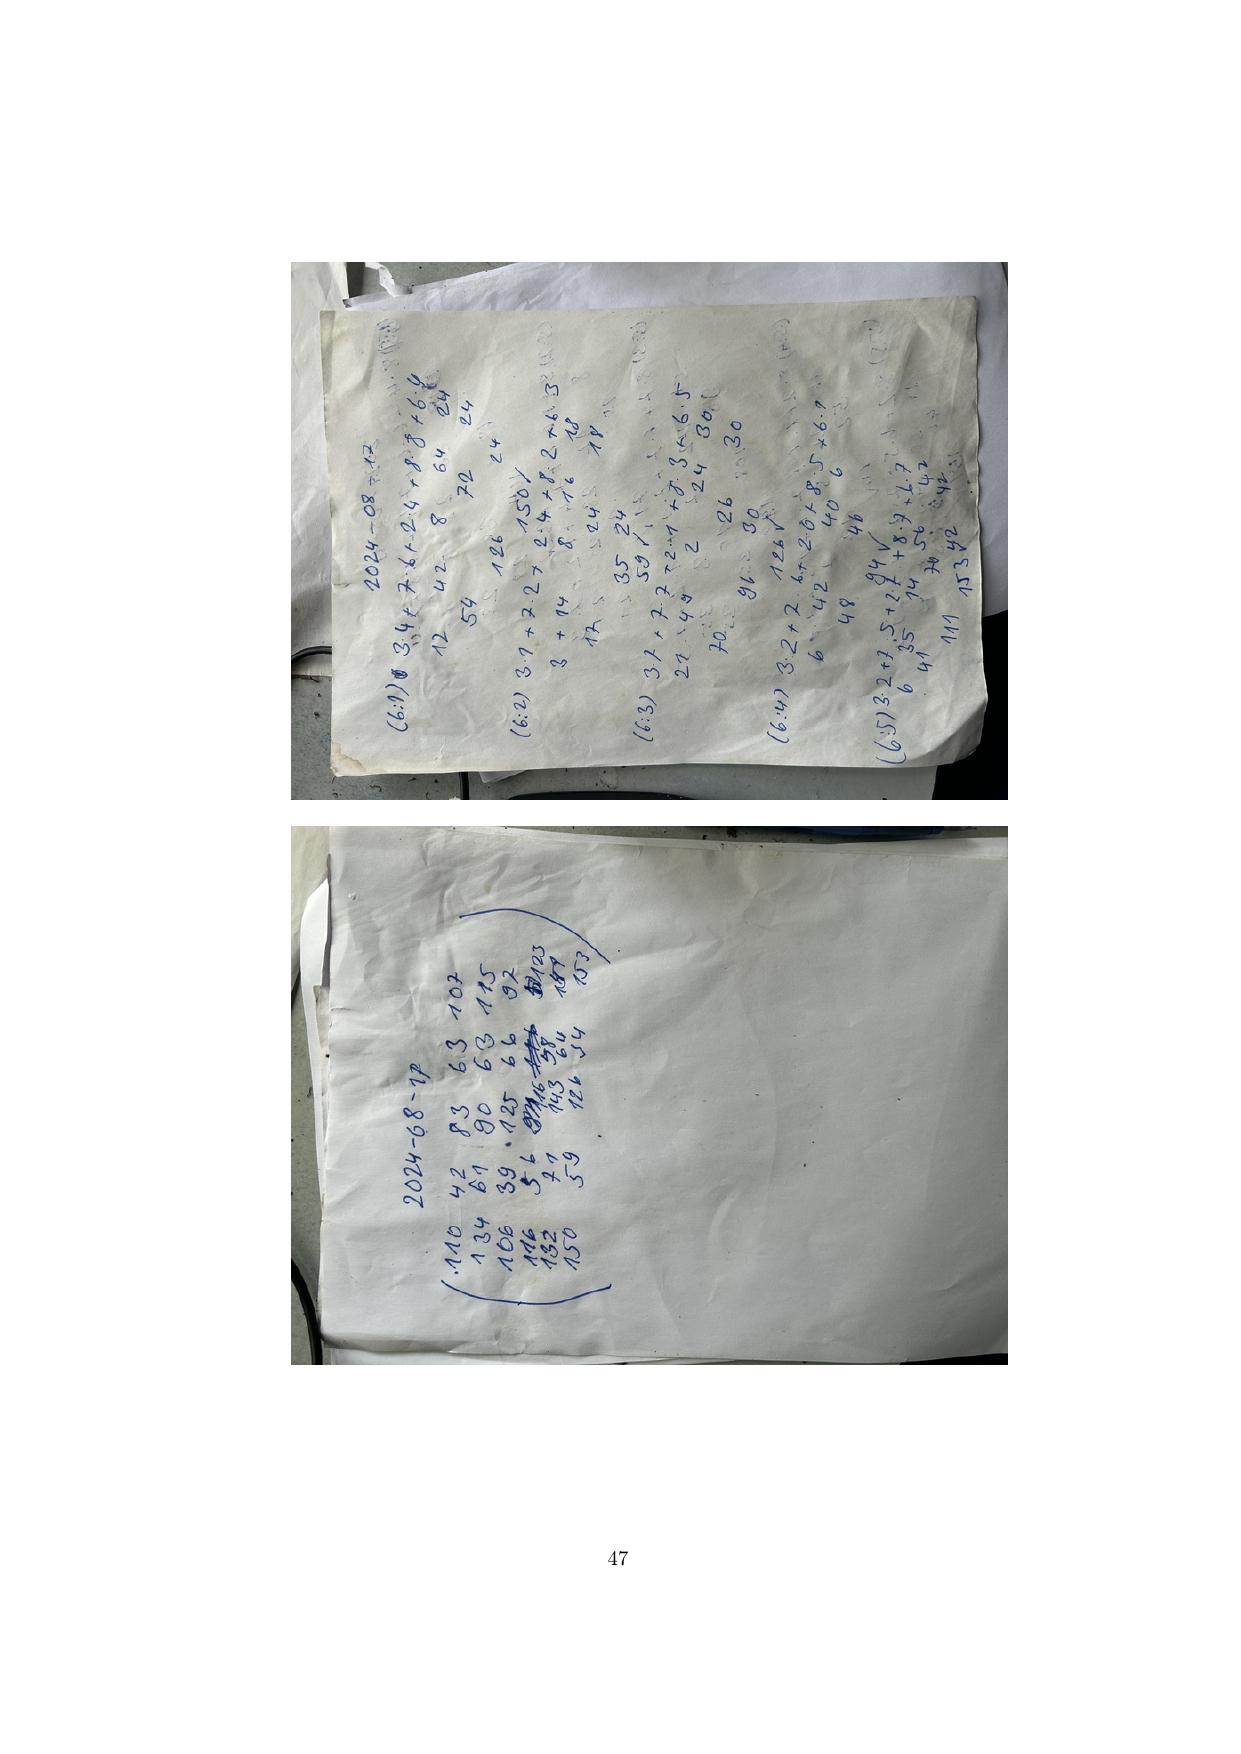 2024-08-17
(6:1) 3·4+7·6+2·4+8·8+6·4
12 42 8 64 24
54 72 24
126 24
150 √
(6:2) 3·1+7·2+2·4+8·2+6·3
3+14 8 16 18
17 24 18
35 24
59 √
(6:3) 3·7+7·7+2·1+8·3+6·5
21 49 2 24 30
70 26 30
96 30
126 √
(6:4) 3·2+7·6+2·0+8·5+6·1
6 42 40 6
48 46
94 √
(6:5) 3·2+7·5+2·7+8·7+6·7
6 35 14 56 42
41 70 42
111 42
153 √
2024-08-17
110 42 83 63 107
134 61 90 63 115
106 39 125 66 97
116 56 116 123
132 71 143 58
150 59 126 64 153
47